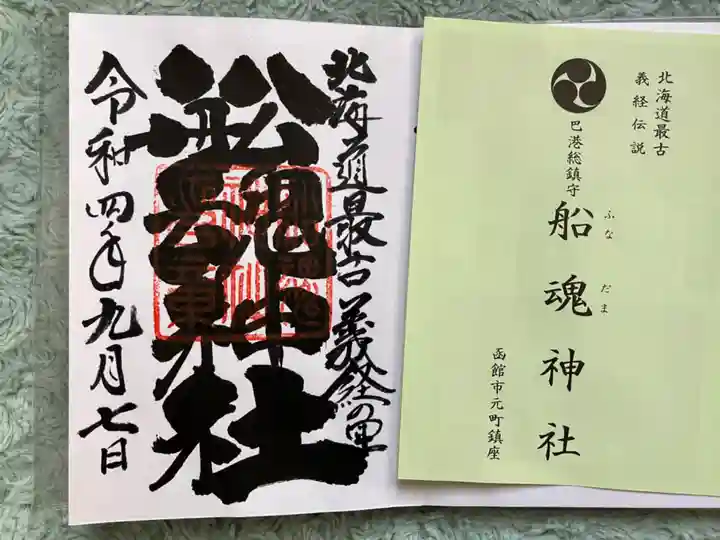 北海道最古
義経伝説
巴港総鎮守
船魂神社
ふなだま
函館市元町鎮座
北海道最古義経の里
舩魂神社
令和四年九月七日